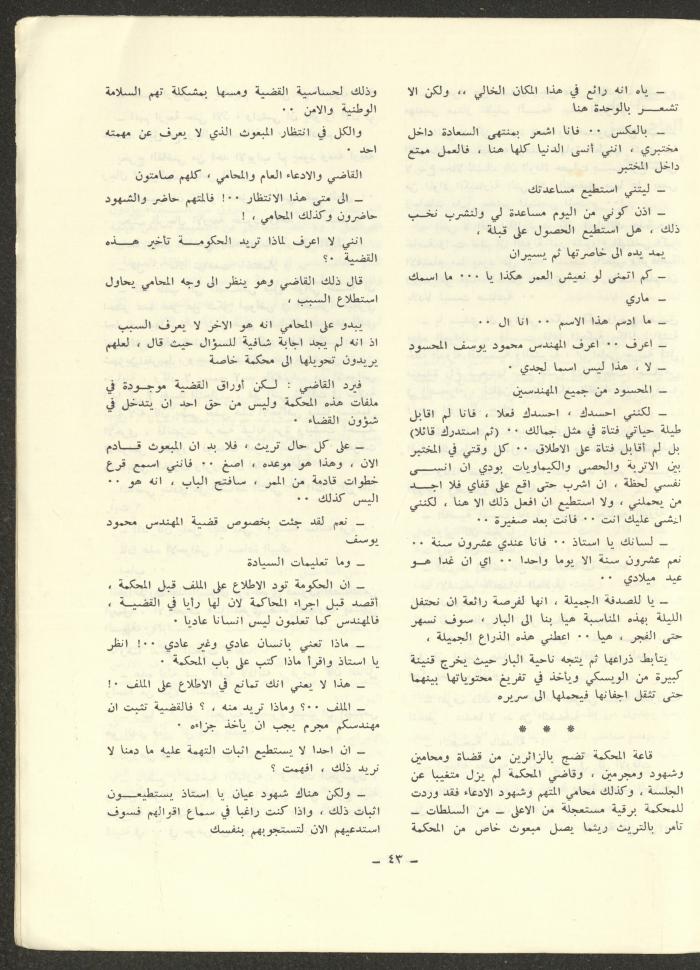 ـ ياه انه رائع في هذا المكان الخالي ،، ولكن الا
تشعــر بالوحدة هنا
ـ بالعكس ٠٠ فانا اشعر بمنتهى السعادة داخل
مختبري ، انني أنسى الدنيا كلها هنا ، فالعمل ممتع
داخل المختبر
ـ ليتني استطيع مساعدتك
ـ اذن كوني من اليوم مساعدة لي ولنشرب نخـب
ذلك ، هل استطيع الحصول على قبلة ،
يمد يده الى خاصرتها ثم يسيران
ـ كم اتمنى لو نعيش العمر هكذا يا ٠٠٠ ما اسمك
ـ ماري
ـ ما ادسم هذا الاسم ٠٠ انا ال ٠٠
ـ اعرف ٠٠ اعرف المهندس محمود يوسف المحسود
ـ لا ، هذا ليس اسما لجدي ٠
ـ المحسود من جميع المهندسين
ـ لكنني احسدك ، احسدك فعلا ، فانا لم اقابل
طيلة حياتي فتاة في مثل جمالك ٠٠ (ثم استدرك قائلا)
بل لم أقابل فتاة على الاطلاق ٠٠ كل وقتي في المختبر
بين الاتربة والحصى والكيماويات بودي ان انســى
نفسي لحظة ، ان اشرب حتى اقع على قفاي فلا اجــد
من يحملني ، ولا استطيع ان افعل ذلك الا هنا ، لكنني
اخشى عليك انت ٠٠ فانت بعد صغيرة ٠٠
ـ لسانك يا استاذ ٠٠ فانا عندي عشرون سنة ٠٠
نعم عشرون سنة الا يوما واحدا ٠٠ اي ان غدا هــو
عيد ميلادي ٠٠
ـ يا للصدفة الجميلة ، انها لفرصة رائعة ان نحتفل
الليلة بهذه المناسبة هيا بنا الى البار ، سوف نسهر
حتى الفجر ، هيا ٠٠ اعطني هذه الذراع الجميلة ،
يتأبط ذراعها ثم يتجه ناحية البار حيث يخرج قنينة
كبيرة من الويسكي ويأخذ في تفريغ محتوياتها بينهما
حتى تثقل اجفانها فيحملها الى سريره
* * *
قاعة المحكمة تضج بالزائرين من قضاة ومحامين
وشهود ومجرمين ، وقاضي المحكمة لم يزل متغيبا عن
الجلسة ، وكذلك محامي المتهم وشهود الادعاء فقد وردت
للمحكمة برقية مستعجلة من الاعلى ـ من السلطات ـ
تأمر بالتريث ريثما يصل مبعوث خاص من المحكمة
وذلك لحساسية القضية ومسها بمشكلة تهم السلامة
الوطنية والامن ٠٠
والكل في انتظار المبعوث الذي لا يعرف عن مهمته
احد ٠
القاضي والادعاء العام والمحامي ، كلهم صامتون
ـ الى متى هذا الانتظار ٠٠! فالمتهم حاضر والشهود
حاضرون وكذلك المحامي ، !
انني لا اعرف لماذا تريد الحكومــة تأخير هــذه
القضية ٠؟
قال ذلك القاضي وهو ينظر الى وجه المحامي يحاول
استطلاع السبب ،
يبدو على المحامي انه هو الاخر لا يعرف السبب
اذ انه لم يجد اجابة شافية للسؤال حيث قال ، لعلهم
يريدون تحويلها الى محكمة خاصة
فيرد القاضي : لـكن أوراق القضية موجـودة في
ملفات هذه المحكمة وليس من حق احد ان يتدخل في
شؤون القضاء ٠
ـ على كل حال تريث ، فلا بد ان المبعوث قــادم
الان ، وهذا هو موعده ، اصغ ٠٠ فانني اسمع قرع
خطوات قادمة من الممر ، سأفتح الباب ، انه هو ٠٠
اليس كذلك ٠٠
ـ نعم لقد جئت بخصوص قضية المهندس محمود
يوسف
ـ وما تعليمات السيادة
ـ ان الحكومة تود الاطلاع على الملف قبل المحكمة ،
أقصد قبل اجراء المحاكمة لان لها رأيا في القضيـة ،
فالمهندس كما تعلمون ليس انسانا عاديا ٠
ـ ماذا تعني بانسان عادي وغير عادي ٠٠! انظر
يا استاذ واقرأ ماذا كتب على باب المحكمة ٠
ـ هذا لا يعني انك تمانع في الاطلاع على الملف ٠!
ـ الملف ٠٠؟ وماذا تريد منه ، ؟ فالقضية تثبت ان
مهندسكم مجرم يجب ان يأخذ جزاءه ٠
ـ ان احدا لا يستطيع اثبات التهمة عليه ما دمنا لا
نريد ذلك ، افهمت ؟
ـ ولكن هناك شهود عيان يا استاذ يستطيعــون
اثبات ذلك ، واذا كنت راغبا في سماع اقوالهم فسوف
استدعيهم الان لتستجوبهم بنفسك
ـ ٤٣ ـ